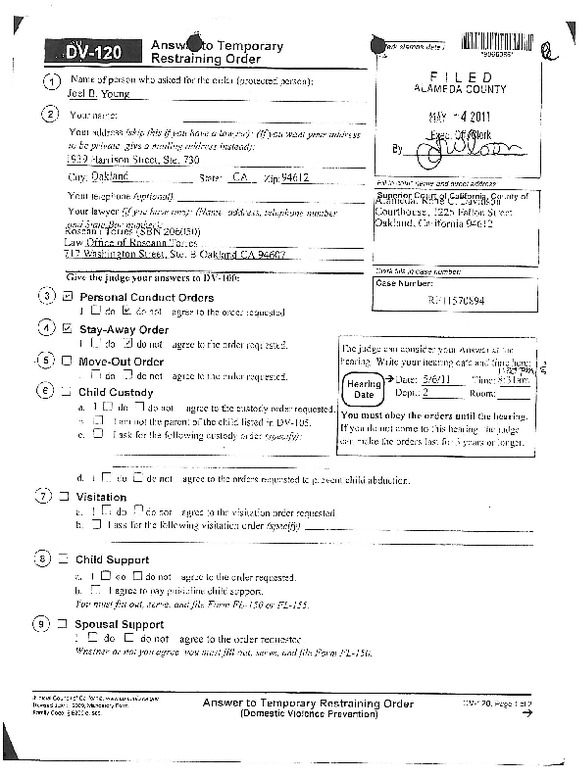 DV-120
Answer to Temporary
Restraining Order
Clerk stamps date
FILED
ALAMEDA COUNTY
MAY - 4 2011
Exec. Off./Clerk
By
① Name of person who asked for the order (protected person):
Joel B. Young
② Your name:
Your address (skip this if you have a lawyer): (If you want your address
to be private, give a mailing address instead):
1939 Harrison Street, Ste. 730
City: Oakland State: CA Zip: 94612
Your telephone (optional)
Your lawyer (if you have one): (Name, address, telephone number
and State Bar number):
Torres (SBN 206030)
Law Office of Roseann Torres
717 Washington Street, Ste. B Oakland CA 94607
Fill in court name and street address
Superior Court of California, County of
Alameda, Rene C. Davidson
Courthouse, 1225 Fallon Street
Oakland, California 94612
Court fills in case number
Case Number:
RF11570894
Give the judge your answers to DV-100:
③ ☑ Personal Conduct Orders
I ☐ do ☑ do not agree to the order requested
④ ☑ Stay-Away Order
I ☐ do ☑ do not agree to the order requested.
⑤ ☐ Move-Out Order
I ☐ do ☐ do not agree to the order requested.
⑥ ☐ Child Custody
a. I ☐ do ☐ do not agree to the custody order requested.
b. ☐ I am not the parent of the child listed in DV-105.
c. ☐ I ask for the following custody order (specify):
d. I ☐ do ☐ do not agree to the orders requested to prevent child abduction.
The judge can consider your Answer at the
hearing. Write your hearing date and time here:
Hearing Date → Date: 5/6/11 Time: 8:31am
Dept.: 2 Room:
You must obey the orders until the hearing.
If you do not come to this hearing, the judge
can make the orders last for 5 years or longer.
⑦ ☐ Visitation
a. I ☐ do ☐ do not agree to the visitation order requested
b. ☐ I ask for the following visitation order (specify)
⑧ ☐ Child Support
a. I ☐ do ☐ do not agree to the order requested.
b. ☐ I agree to pay guideline child support.
You must fill out, serve, and file Form FL-150 or FL-155.
⑨ ☐ Spousal Support
I ☐ do ☐ do not agree to the order requested
Whether or not you agree, you must fill out, serve, and file Form FL-150.
Judicial Council of California,
2009, Mandatory Form
Family Code
Answer to Temporary Restraining Order
(Domestic Violence Prevention)
DV-120, Page 1 of 2
→